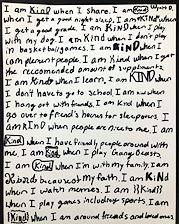 I am KIND when I share. I am Kind
when I get a good night sleep. I am KIND when
I get a good grade. I am KIND when I play
with my dog. I am Kind when I don't play
in basketball games. I am KIND when I
complement people. I am Kind when I get
the reccomended amount of supplements.
I am Kind when I learn. I am KIND when
I don't have to go to school. I am KIND when
I hang out with friends. I am Kind when I
go over to friend's houses for sleepovers. I
am KIND when people are nice to me. I am
Kind when I have friendly people around with
me. I am Kind when I play Gameg Beasts.
I am Kind when I'm with my family. I am
Kind because of my faith. I am KIND
when I watch memes. I am {{Kind}}
when I play games including sports. I am
Kind when I am around friends and loved ones.